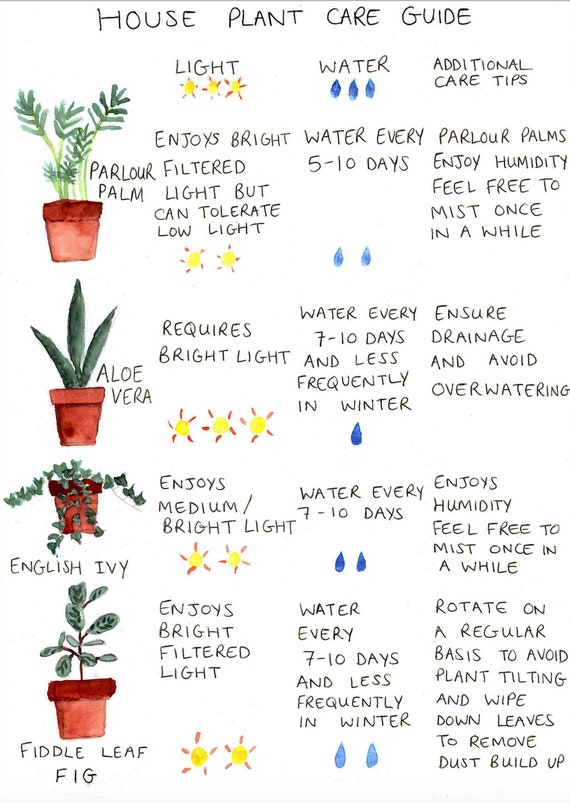 HOUSE PLANT CARE GUIDE
LIGHT
WATER
ADDITIONAL
CARE TIPS
PARLOUR
PALM
ENJOYS BRIGHT
FILTERED
LIGHT BUT
CAN TOLERATE
LOW LIGHT
WATER EVERY
5-10 DAYS
PARLOUR PALMS
ENJOY HUMIDITY
FEEL FREE TO
MIST ONCE
IN A WHILE
ALOE
VERA
REQUIRES
BRIGHT LIGHT
WATER EVERY
7-10 DAYS
AND LESS
FREQUENTLY
IN WINTER
ENSURE
DRAINAGE
AND AVOID
OVERWATERING
ENGLISH IVY
ENJOYS
MEDIUM/
BRIGHT LIGHT
WATER EVERY
7-10 DAYS
ENJOYS
HUMIDITY
FEEL FREE TO
MIST ONCE IN
A WHILE
FIDDLE LEAF
FIG
ENJOYS
BRIGHT
FILTERED
LIGHT
WATER
EVERY
7-10 DAYS
AND LESS
FREQUENTLY
IN WINTER
ROTATE ON
A REGULAR
BASIS TO AVOID
PLANT TILTING
AND WIPE
DOWN LEAVES
TO REMOVE
DUST BUILD UP